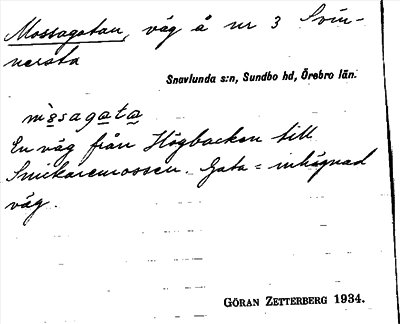 Mossagatan, väg å nr 3 Svin-
nersta
Snavlunda s:n, Sundbo hd, Örebro län.
mòsagata
En väg från Högbacken till
Smekaremossen. Gata = inhägnad
väg.
GÖRAN ZETTERBERG 1934.